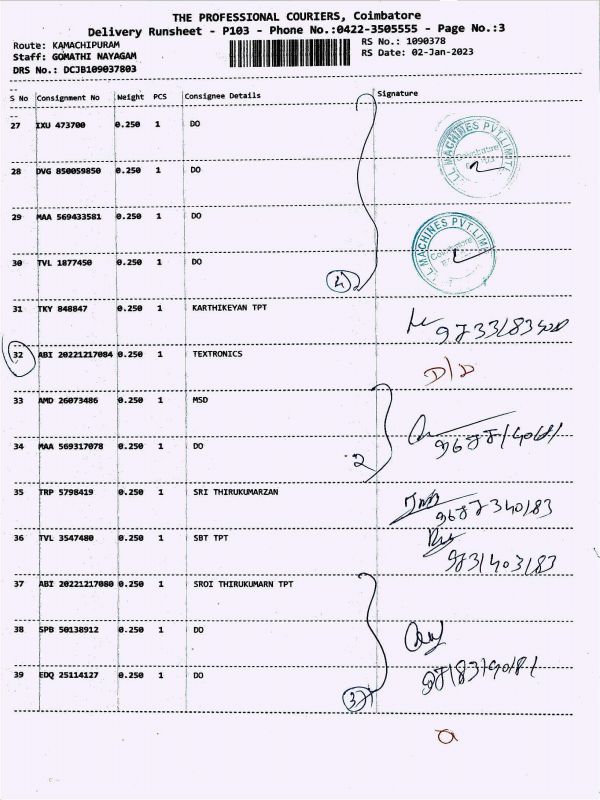 THE PROFESSIONAL COURIERS, Coimbatore
Delivery Runsheet - P103 - Phone No.:0422-3505555 - Page No.:3
Route: KAMACHIPURAM
RS No.: 1090378
Staff: GOMATHI NAYAGAM
RS Date: 02-Jan-2023
DRS No.: DCJB109037803
S No Consignment No Weight PCS Consignee Details Signature
27 IXU 473700 0.250 1 DO
28 DVG 850059850 0.250 1 DO
29 MAA 569433581 0.250 1 DO
30 TVL 1877450 0.250 1 DO
4
31 TKY 848847 0.250 1 KARTHIKEYAN TPT
32 ABI 20221217084 0.250 1 TEXTRONICS
D/D
33 AMD 26073486 0.250 1 MSD
34 MAA 569317078 0.250 1 DO
2
35 TRP 5798419 0.250 1 SRI THIRUKUMARZAN
36 TVL 3547480 0.250 1 SBT TPT
37 ABI 20221217080 0.250 1 SROI THIRUKUMARN TPT
38 SPB 50138912 0.250 1 DO
39 EDQ 25114127 0.250 1 DO
3